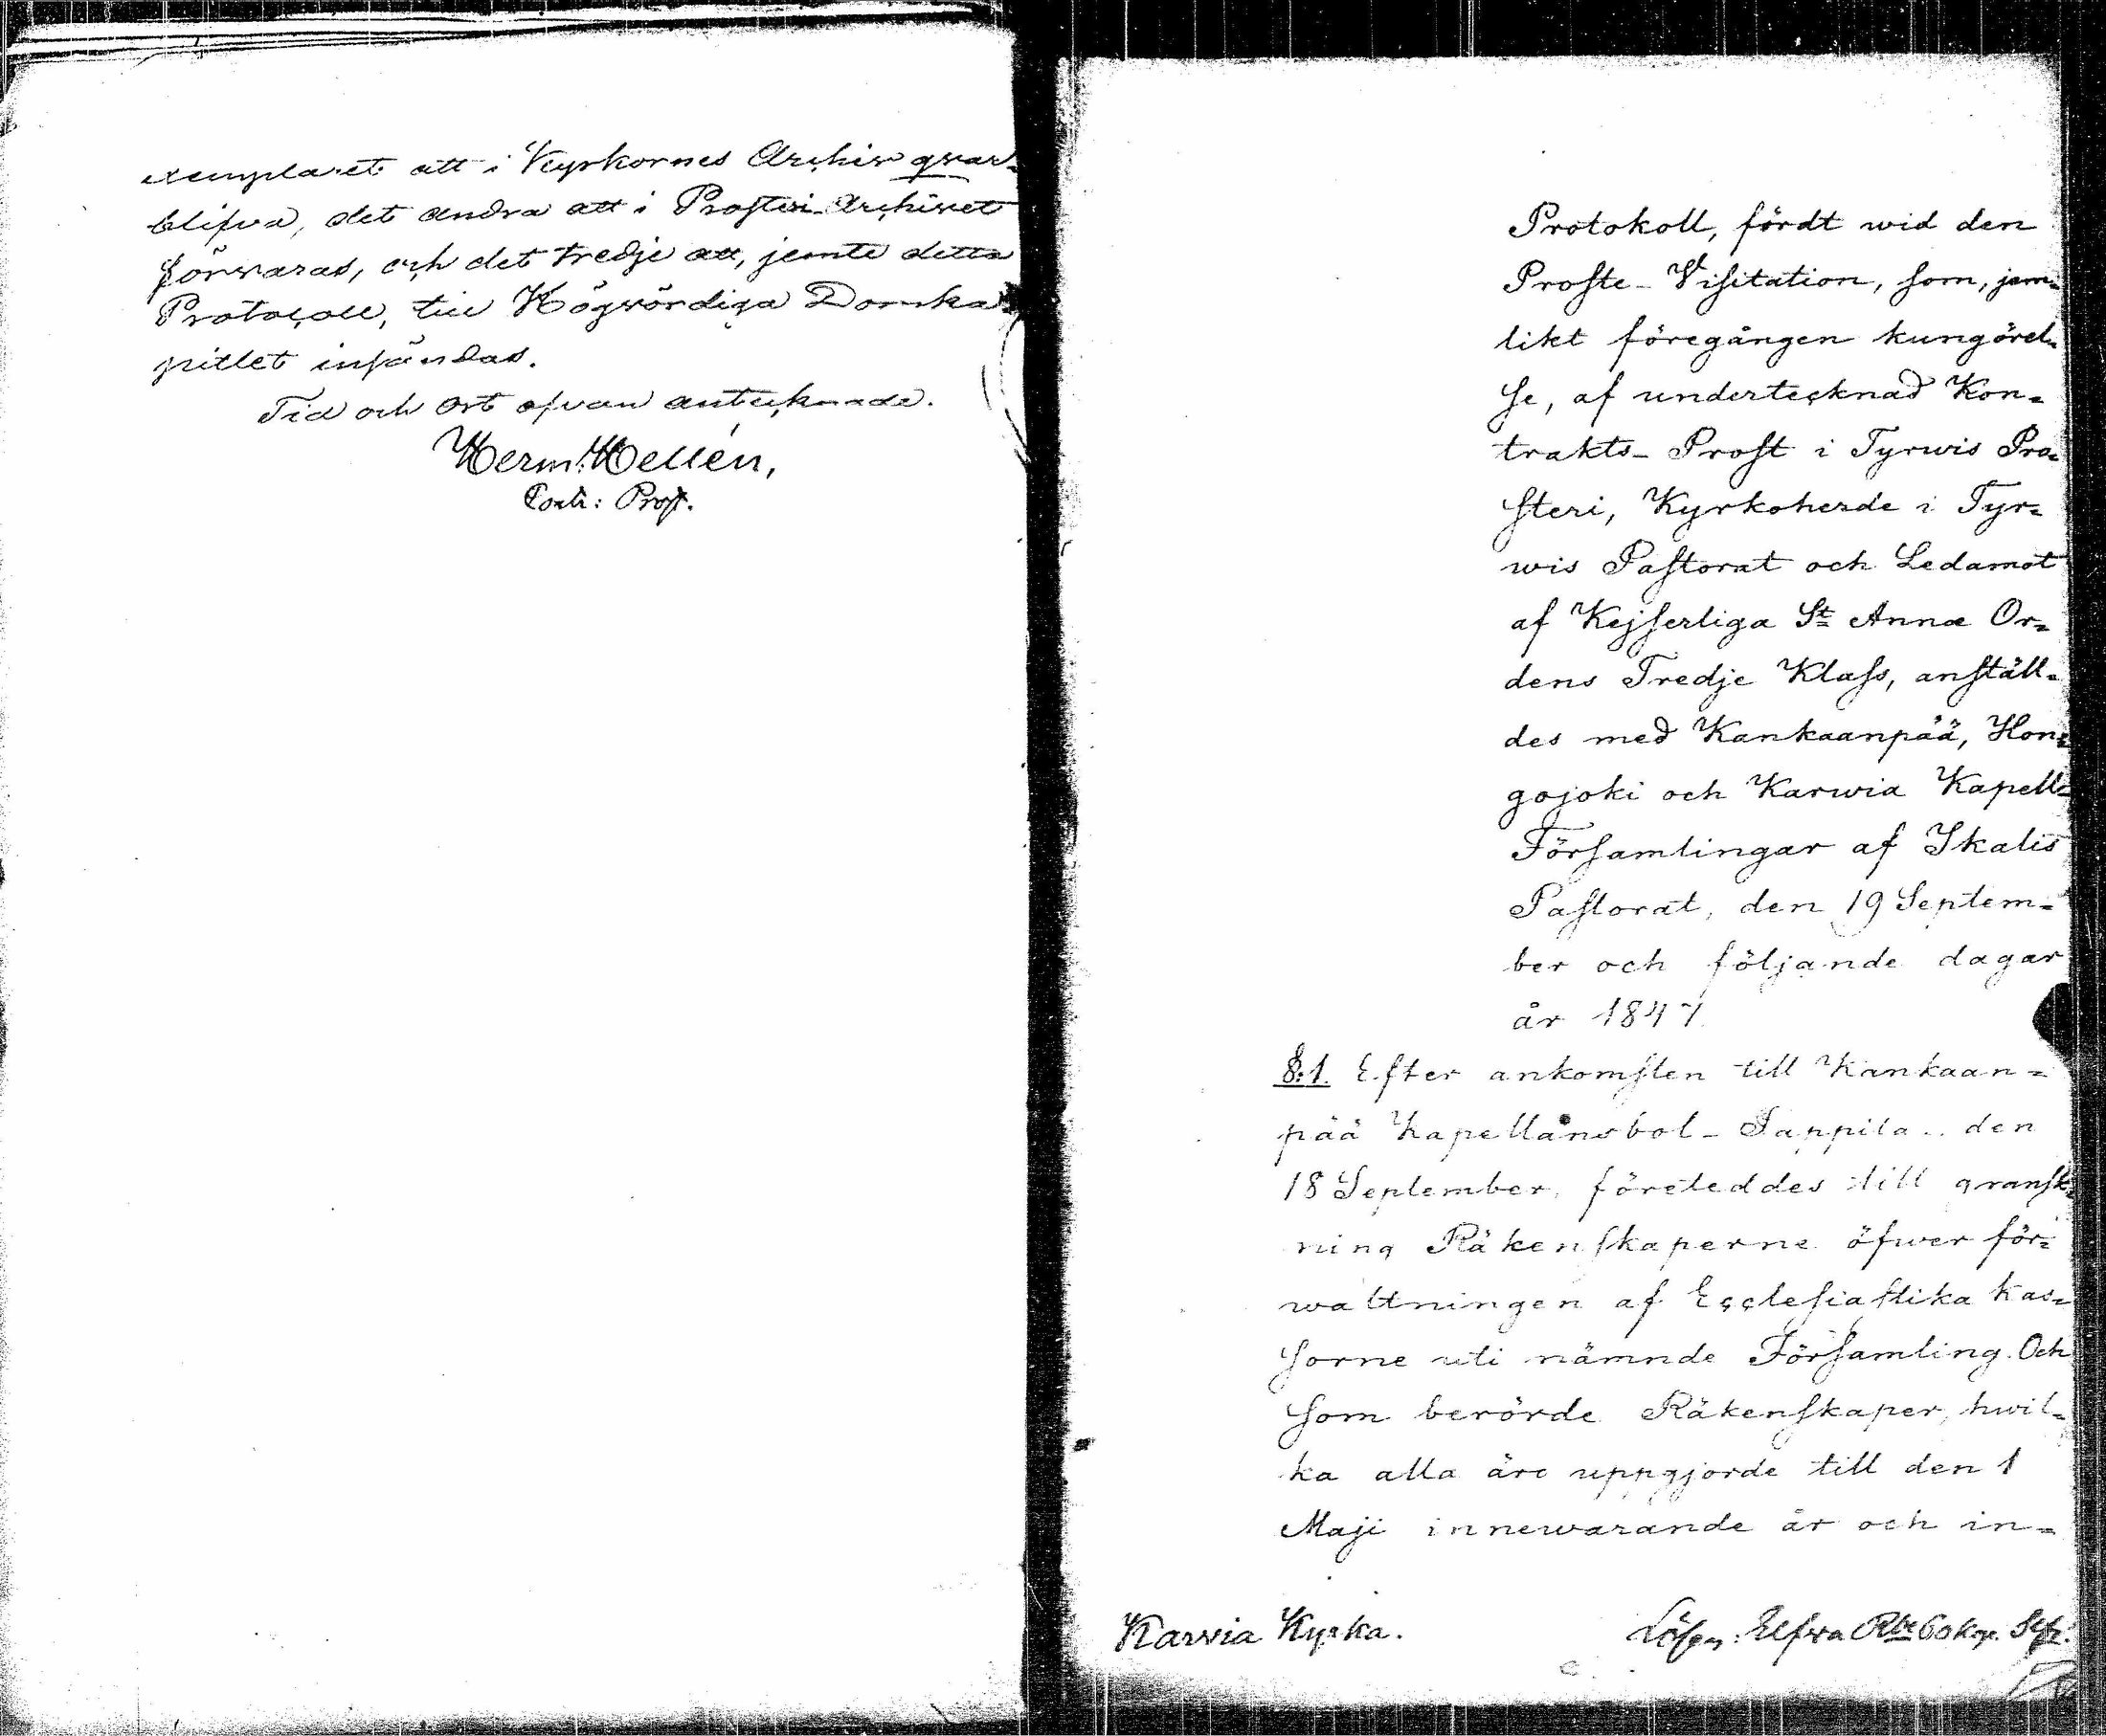 exemplaret att i Kyrkornes Archiv qvar-
blifva, det andra att i Prosteri-Archivet
förvaras, och det tredje att, jemte detta
Protocoll, till Högvördiga Domka-
pitlet insändas.
Tid och ort ofvan antecknade.
Herm: Hellén,
Contr: Prost.
Protokoll, fördt wid den
Proste-Visitation, som, jem-
likt föregången kungörel-
se, af undertecknad Kon-
trakts-Prost i Tyrwis Pro-
steri, Kyrkoherde i Tyr-
wis Pastorat och Ledamot
af Kejserliga St Annæ Or-
dens Tredje Klass, anställ-
des med Kankaanpää, Hon-
gojoki och Karwia Kapell-
Församlingar af Ikalis
Pastorat, den 19 Septem-
ber och följande dagar
år 1847.
§:1. Efter ankomsten till Kankaan-
pää Kapellansbol-Pappila, den
18 September, företeddes till gransk-
ning Räkenskaperne öfwer för-
waltningen af Ecclesiastika Kas-
sorne uti nämnde Församling. Och
som berörde Räkenskaper, hwil-
ka alla äro uppgjorde till den 1
Maji innewarande år och in-
Karvia Kyrka.
Lösen: Elfva Rbr 60 kop. Silfr.